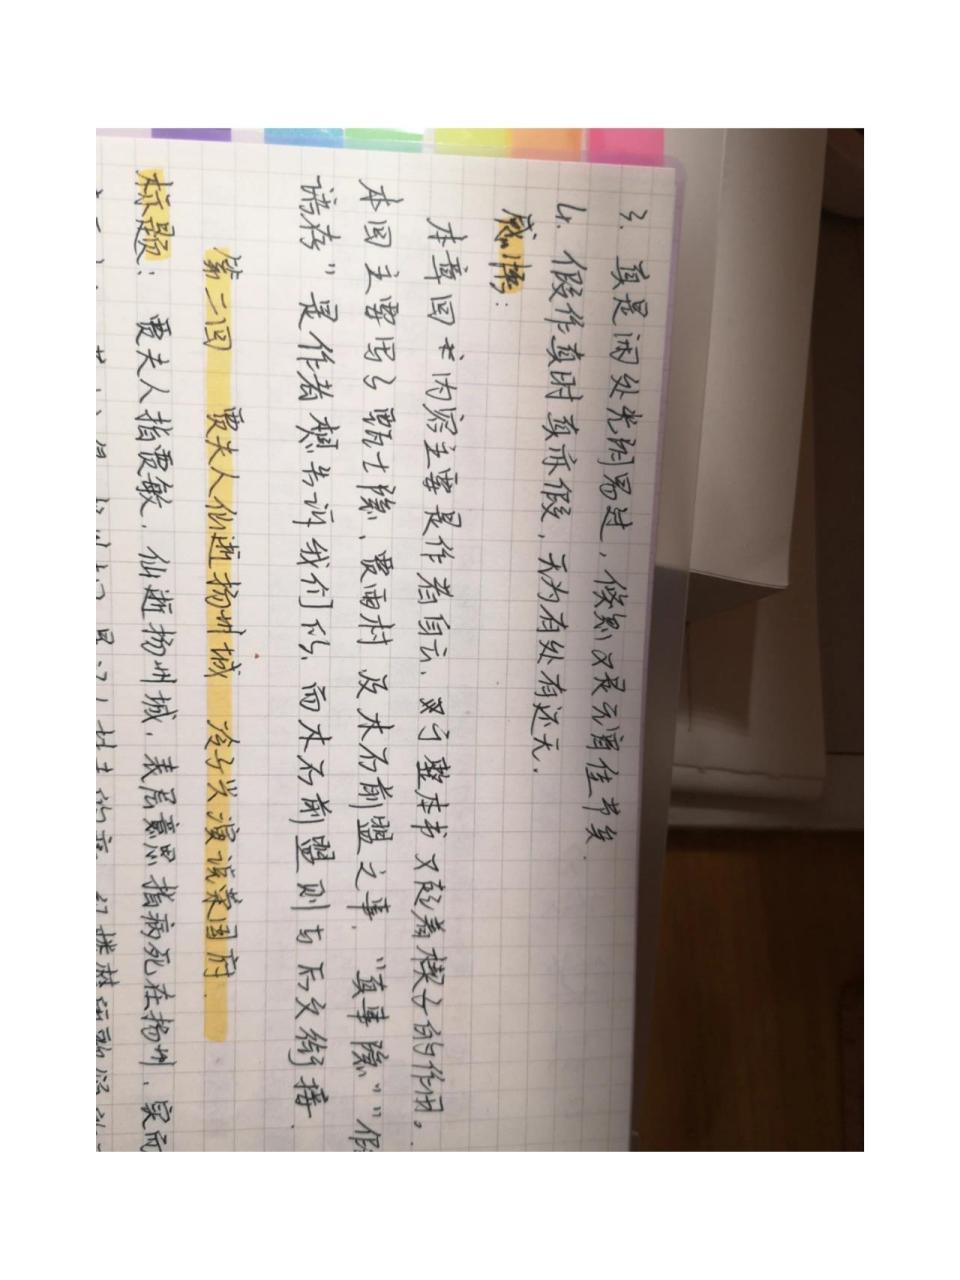 3. 真是闲处光阴易过，倏忽又是元宵佳节矣.
4. 假作真时真亦假，无为有处有还无.
感悟：
本章回内容主要是作者自云、对于整本书又起着楔子的作用。
本回主要写了甄士隐、贾雨村及木石前盟之事. "真事隐""假
语存"是作者想告诉我们的、而木石前盟则与下文衔接.
第二回 贾夫人仙逝扬州城 冷子兴演说荣国府.
标题：贾夫人指贾敏. 仙逝扬州城. 表层意思指病死在扬州. 实而